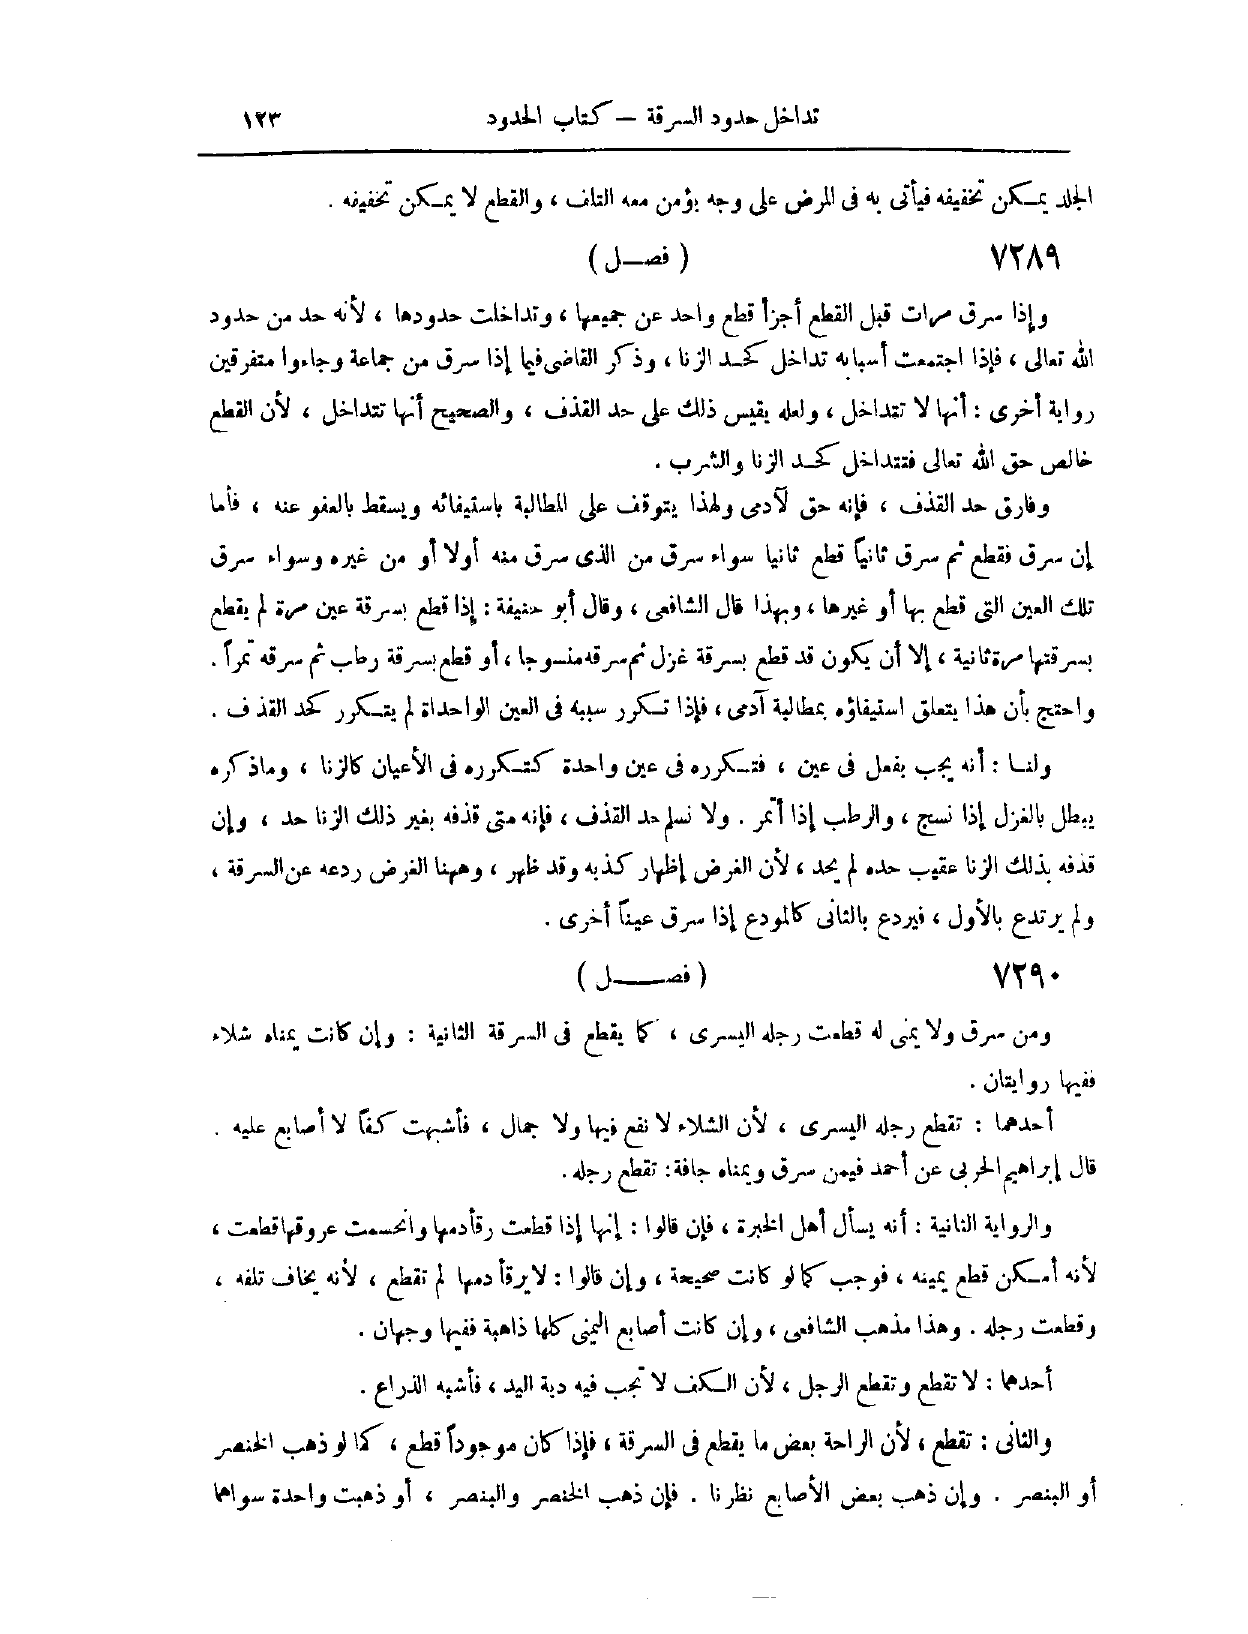 تداخل حدود السرقة – كتاب الحدود ١٢٣
الجلد يمكن تخفيفه فيأتى به فى المرض على وجه يؤمن معه التلف ، والقطع لا يمكن تخفيفه .
٧٢٨٩ ( فصل )
وإذا سرق مرات قبل القطع أجزأ قطع واحد عن جميعها ، وتداخلت حدودها ، لأنه حد من حدود
الله تعالى ، فإذا اجتمعت أسبابه تداخل كحد الزنا ، وذكر القاضى فيما إذا سرق من جماعة وجاءوا متفرقين
رواية أخرى : أنها لا تتداخل ، ولعله يقيس ذلك على حد القذف ، والصحيح أنها تتداخل ، لأن القطع
خالص حق الله تعالى فتتداخل كحد الزنا والشرب .
وفارق حد القذف ، فإنه حق لآدمى ولهذا يتوقف على المطالبة باستيفائه ويسقط بالعفو عنه ، فأما
إن سرق فقطع ثم سرق ثانياً قطع ثانيا سواء سرق من الذى سرق منه أولا أو من غيره وسواء سرق
تلك العين التى قطع بها أو غيرها ، وبهذا قال الشافعى ، وقال أبو حنيفة : إذا قطع بسرقة عين مرة لم يقطع
بسرقتها مرة ثانية ، إلا أن يكون قد قطع بسرقة غزل ثم سرقه منسوجا ، أو قطع بسرقة رطب ثم سرقه تمراً .
واحتج بأن هذا يتعلق استيفاؤه بمطالبة آدمى ، فإذا تكرر سببه فى العين الواحداة لم يتكرر كحد القذف .
ولنا : أنه يجب بفعل فى عين ، فتكرره فى عين واحدة كتكرره فى الأعيان كالزنا ، وماذكره
يبطل بالغزل إذا نسج ، والرطب إذا أتمر . ولا نسلم حد القذف ، فإنه متى قذفه بغير ذلك الزنا حد ، وإن
قذفه بذلك الزنا عقيب حده لم يحد ، لأن الغرض إظهار كذبه وقد ظهر ، وههنا الغرض ردعه عن السرقة ،
ولم يرتدع بالأول ، فيردع بالثانى كالمودع إذا سرق عيناً أخرى .
٧٢٩٠ ( فصل )
ومن سرق ولا يمنى له قطعت رجله اليسرى ، كما يقطع فى السرقة الثانية : وإن كانت يمناه شلاء
ففيها روايتان .
أحدهما : تقطع رجله اليسرى ، لأن الشلاء لا نفع فيها ولا جمال ، فأشبهت كفاً لا أصابع عليه .
قال إبراهيم الحربى عن أحمد فيمن سرق ويمناه جافة : تقطع رجله .
والرواية الثانية : أنه يسأل أهل الخبرة ، فإن قالوا : إنها إذا قطعت رقأ دمها وانحسمت عروقها قطعت ،
لأنه أمكن قطع يمينه ، فوجب كما لو كانت صحيحة ، وإن قالوا : لا يرقأ دمها لم تقطع ، لأنه يخاف تلفه ،
وقطعت رجله . وهذا مذهب الشافعى ، وإن كانت أصابع اليمنى كلها ذاهبة ففيها وجهان .
أحدهما : لا تقطع وتقطع الرجل ، لأن الكف لا تجب فيه دية اليد ، فأشبه الذراع .
والثانى : تقطع ، لأن الراحة بعض ما يقطع فى السرقة ، فإذا كان موجوداً قطع ، كما لو ذهب الخنصر
أو البنصر . وإن ذهب بعض الأصابع نظرنا . فإن ذهب الخنصر والبنصر ، أو ذهبت واحدة سواها